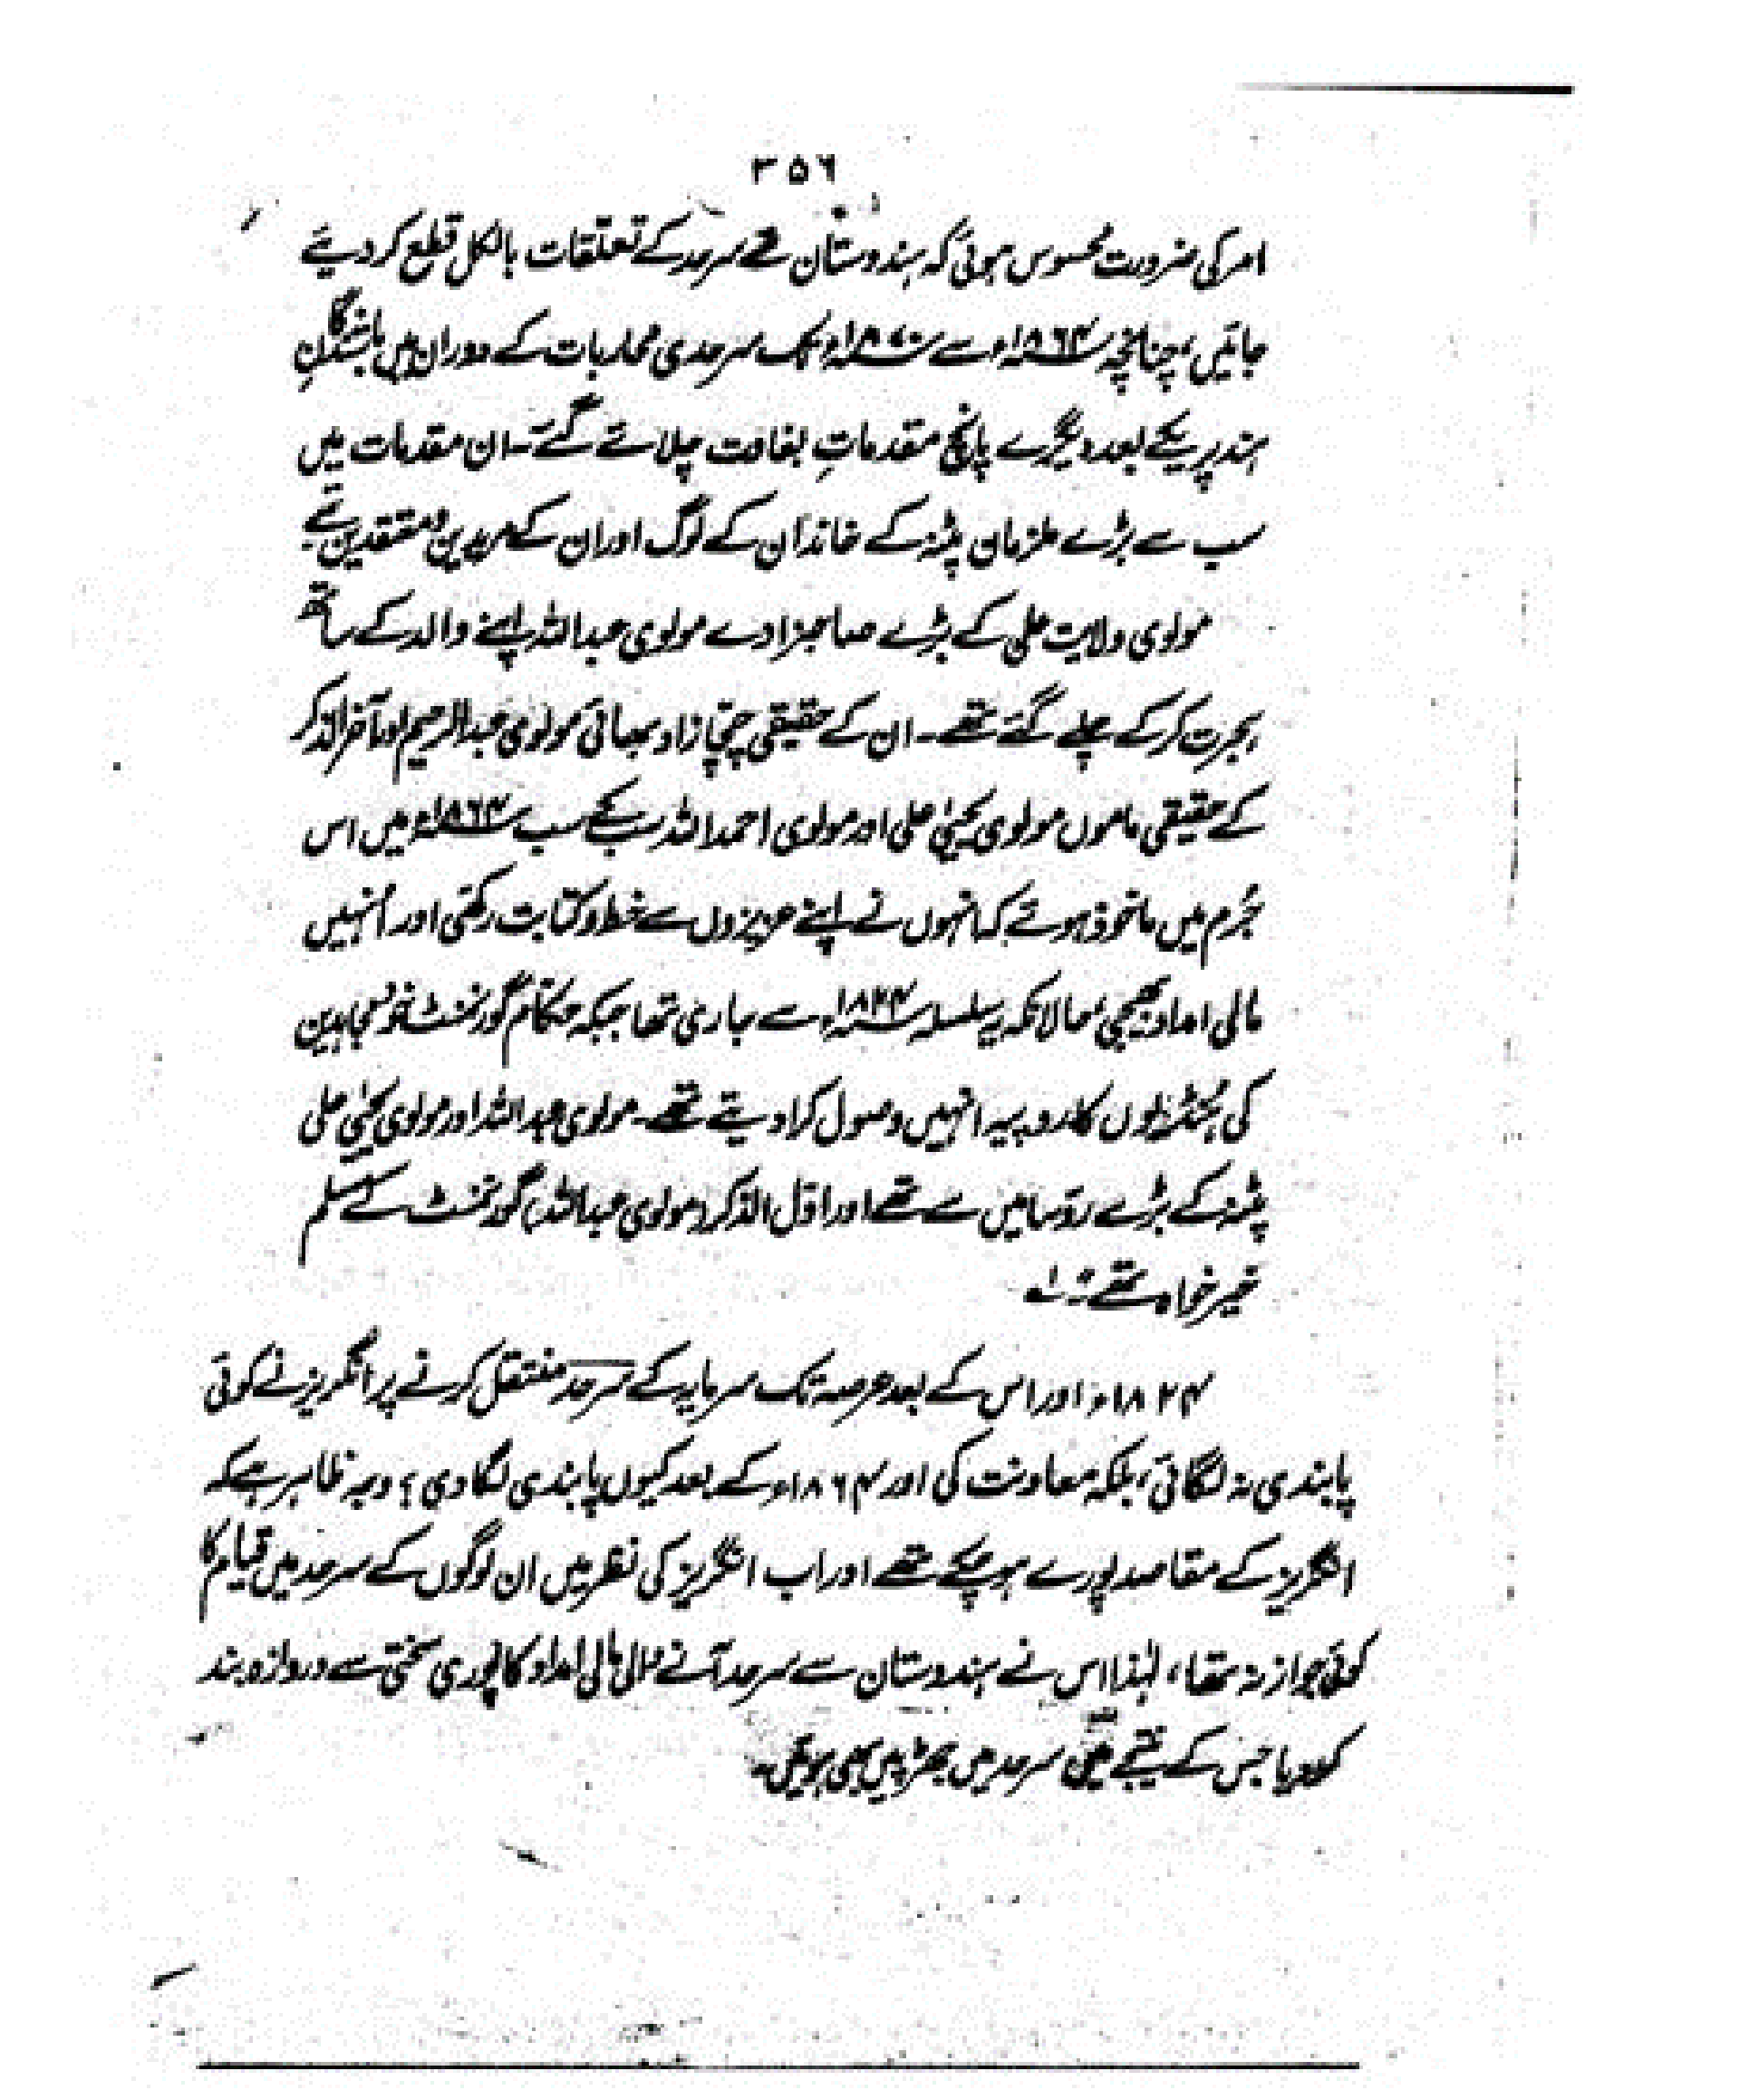 ۳۵۶
امر کی ضرورت محسوس ہوئی کہ ہندوستان سے سرحد کے تعلقات بالکل قطع کر دیئے
جائیں، چنانچہ ۱۸۶۴ء سے ۱۸۷۰ء تک سرحدی محاربات کے دوران میں باشندگانِ
ہند پر یکے بعد دیگرے پانچ مقدماتِ بغاوت چلائے گئے۔ ان مقدمات میں
سب سے بڑے ملزمان پٹنہ کے خاندان کے لوگ اور ان کے مریدین و معتقدین تھے۔
مولوی ولایت علی کے بڑے صاحبزادے مولوی عبداللہ اپنے والد کے ساتھ
ہجرت کر کے چلے گئے تھے۔ ان کے حقیقی چچا زاد بھائی مولوی عبدالرحیم اور آخر الذکر
کے حقیقی ماموں مولوی یحییٰ علی اور مولوی احمد اللہ سب کے سب ۱۸۶۴ء میں اس
جُرم میں ماخوذ ہوئے کہ انہوں نے اپنے عزیزوں سے خط و کتابت رکھی اور اُنہیں
مالی امداد بھیجی، حالانکہ یہ سلسلہ ۱۸۲۴ء سے جاری تھا جبکہ حکام گورنمنٹ خود مجاہدین
کی ہُنڈیوں کا روپیہ انہیں وصول کرا دیتے تھے۔ مولوی عبداللہ اور مولوی یحییٰ علی
پٹنہ کے بڑے رؤسا میں سے تھے اور اوّل الذکر (مولوی عبداللہ) گورنمنٹ کے مسلم
خیر خواہ تھے۔" ۱؎
۱۸۲۴ء اور اس کے بعد عرصہ تک سرمایہ کے سرحد منتقل کرنے پر انگریز نے کوئی
پابندی نہ لگائی، بلکہ معاونت کی اور ۱۸۶۴ء کے بعد کیوں پابندی لگا دی؟ وجہ ظاہر ہے کہ
انگریز کے مقاصد پورے ہو چکے تھے اور اب انگریز کی نظر میں ان لوگوں کے سرحد میں قیام کا
کوئی جواز نہ تھا، لہٰذا اس نے ہندوستان سے سرحد آنے والی مالی امداد کا پوری سختی سے دروازہ بند
کر دیا جس کے نتیجے میں سرحد میں جھڑپیں بھی ہوئیں۔